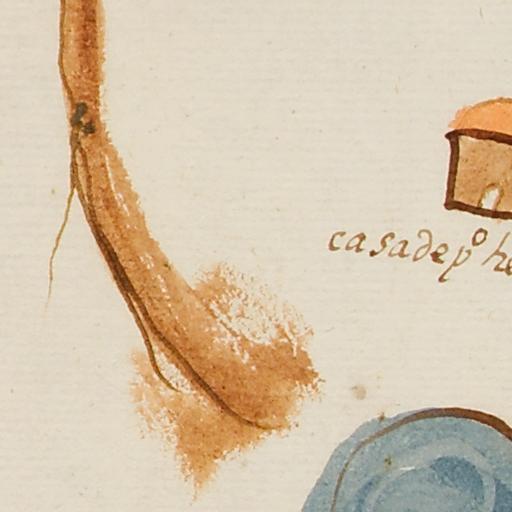 casa de pº he